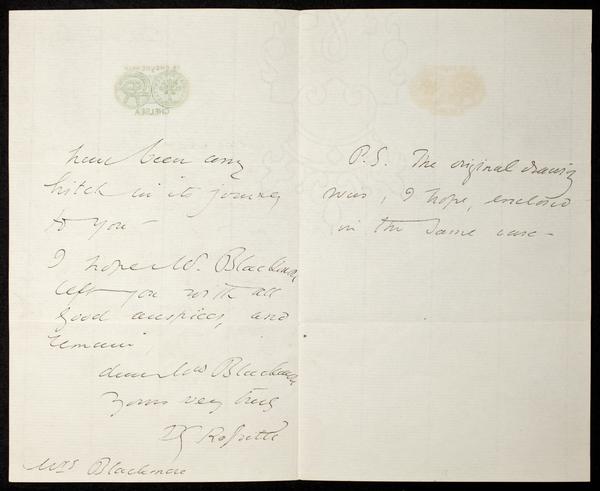 16 CHEYNE WALK
CHELSEA
have been any
hitch in its journey
to you –
I hope Mr. Blackmore
left you with all
good auspices, and
remain,
dear Mrs Blackmore
Yours very truly
DG Rossetti
Mrs Blackmore
P.S. The original drawing
was, I hope, enclosed
in the same case –